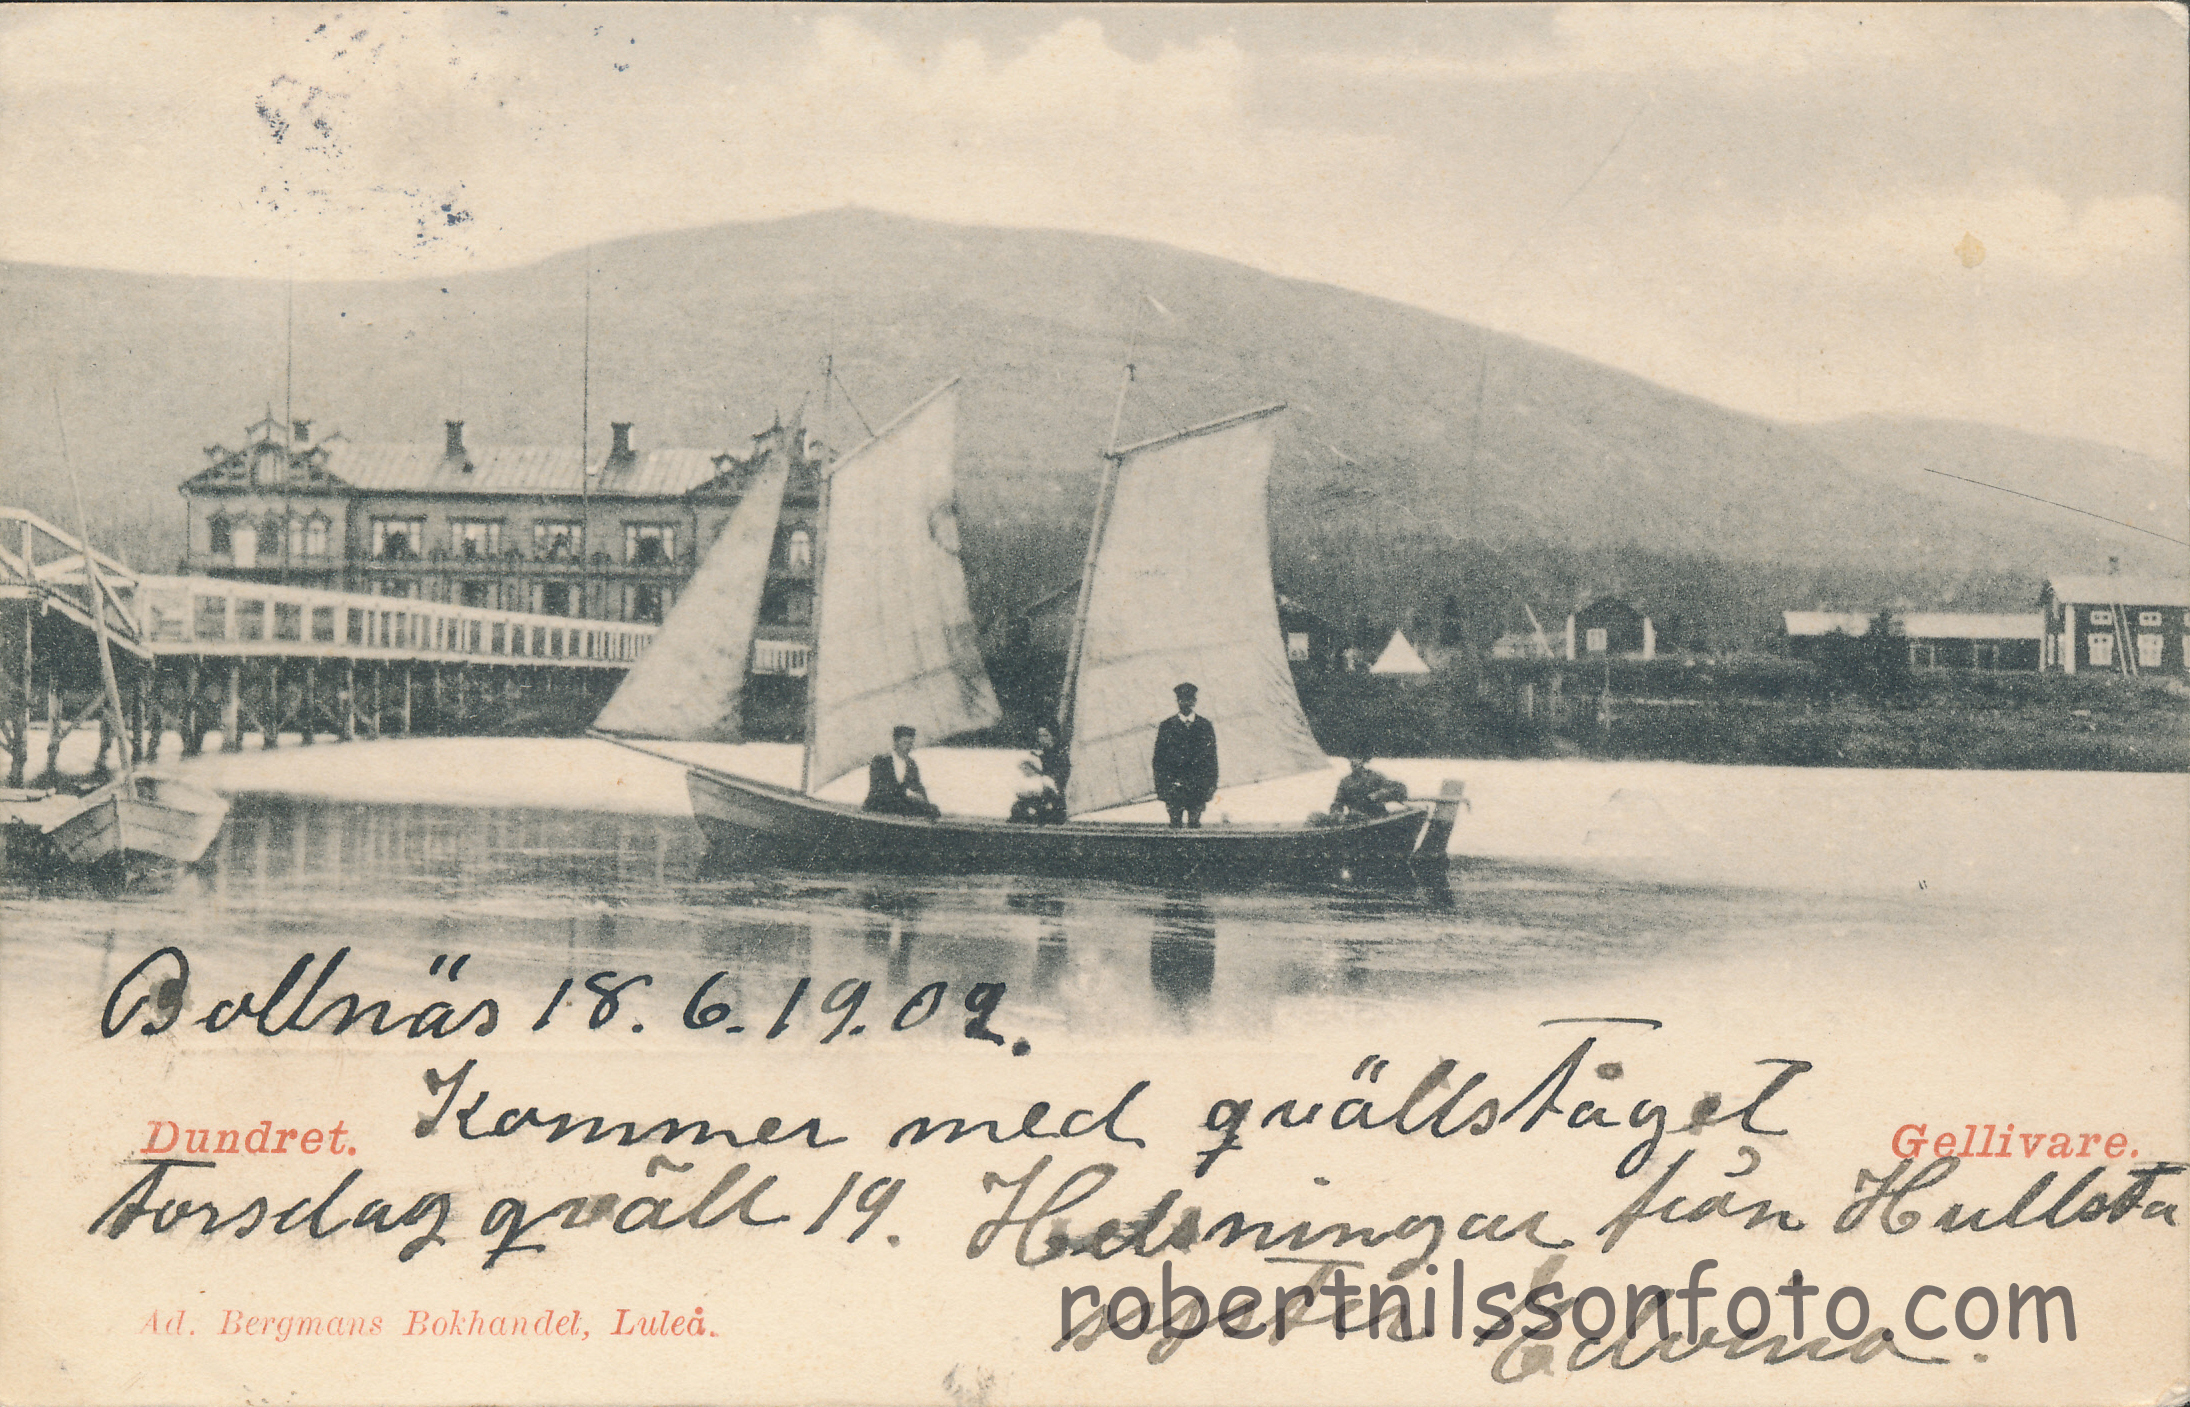 Bollnäs 18.6.19.02.
Kommer med qvällståget
Dundret. Gellivare.
torsdag qväll 19. Helsningar från Hullsta
syster
Ad. Bergmans Bokhandel, Luleå.
robertnilssonfoto.com